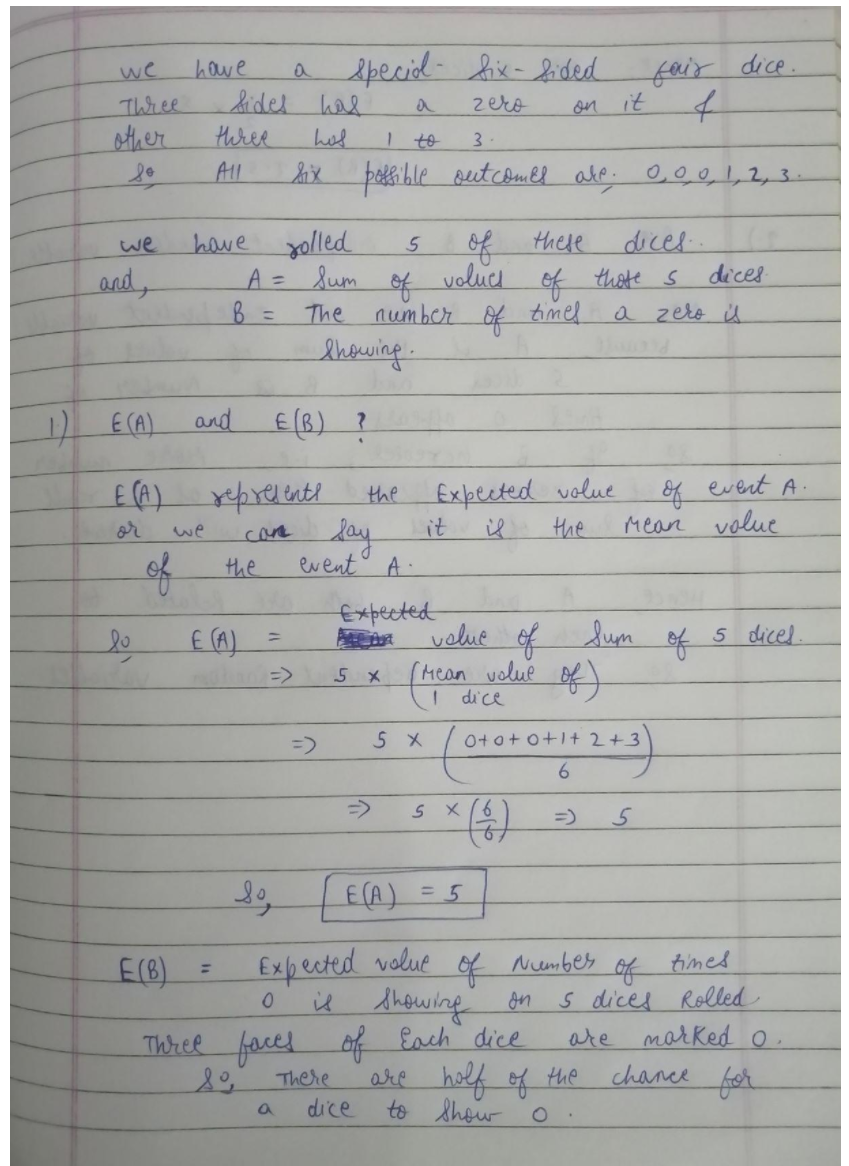 we have a special - six-sided fair dice.
Three sides has a zero on it &
other three has 1 to 3.
So, All six possible outcomes are; 0,0,0,1,2,3.
we have rolled 5 of these dices.
and, A = Sum of values of those 5 dices
B = The number of times a zero is
showing.
1.) E(A) and E(B) ?
E(A) represents the Expected value of event A.
or we can say it is the mean value
of the event A.
So, E(A) = Expected value of sum of 5 dices.
=> 5 × (Mean value of 1 dice)
=> 5 × (0+0+0+1+2+3 / 6)
=> 5 × (6/6) => 5
So, E(A) = 5
E(B) = Expected value of Number of times
0 is showing on 5 dices Rolled
Three faces of Each dice are marked 0.
So, There are half of the chance for
a dice to show 0.